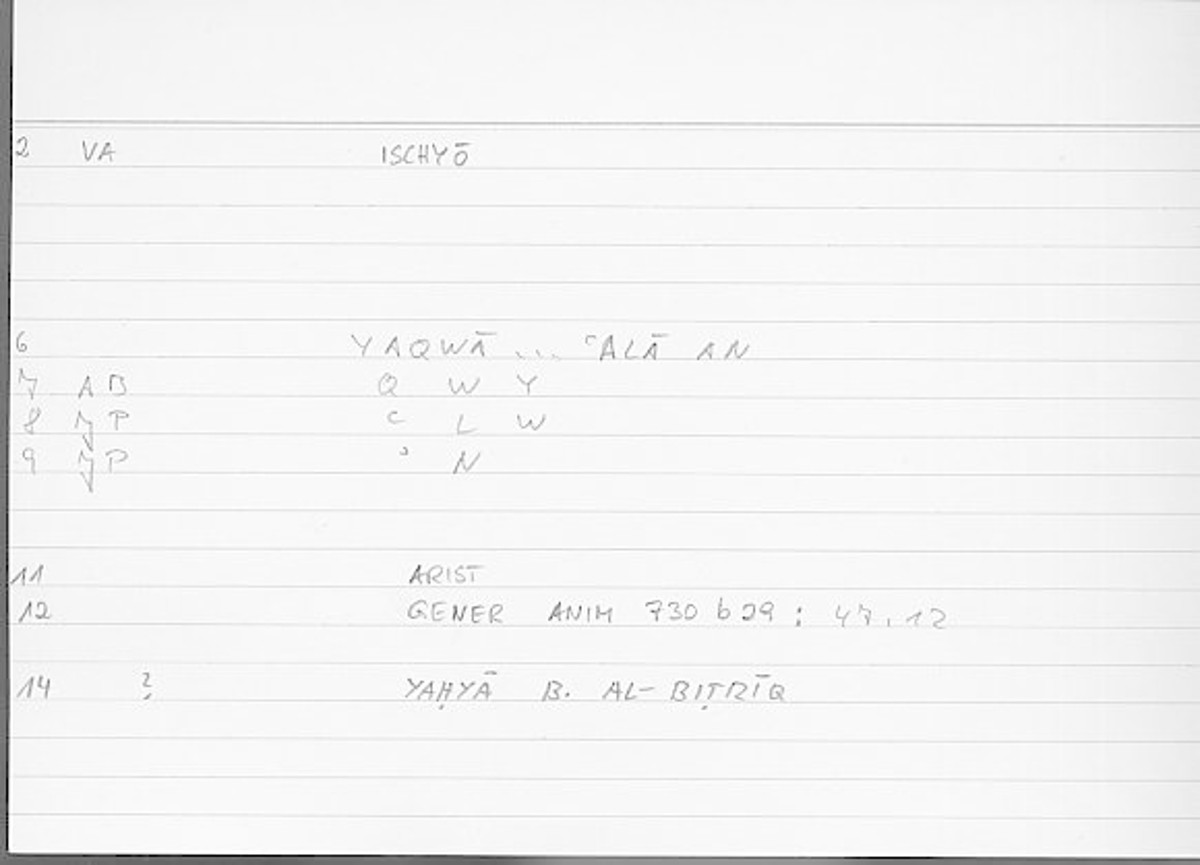 2 VA ISCHYŌ
6 YAQWĀ ... ʿALĀ AN
7 AB Q W Y
8 JP ʿ L W
9 JP ʾ N
11 ARIST
12 GENER ANIM 730 b 29 : 47,12
14 ? YAḤYĀ B. AL-BIṬRĪQ